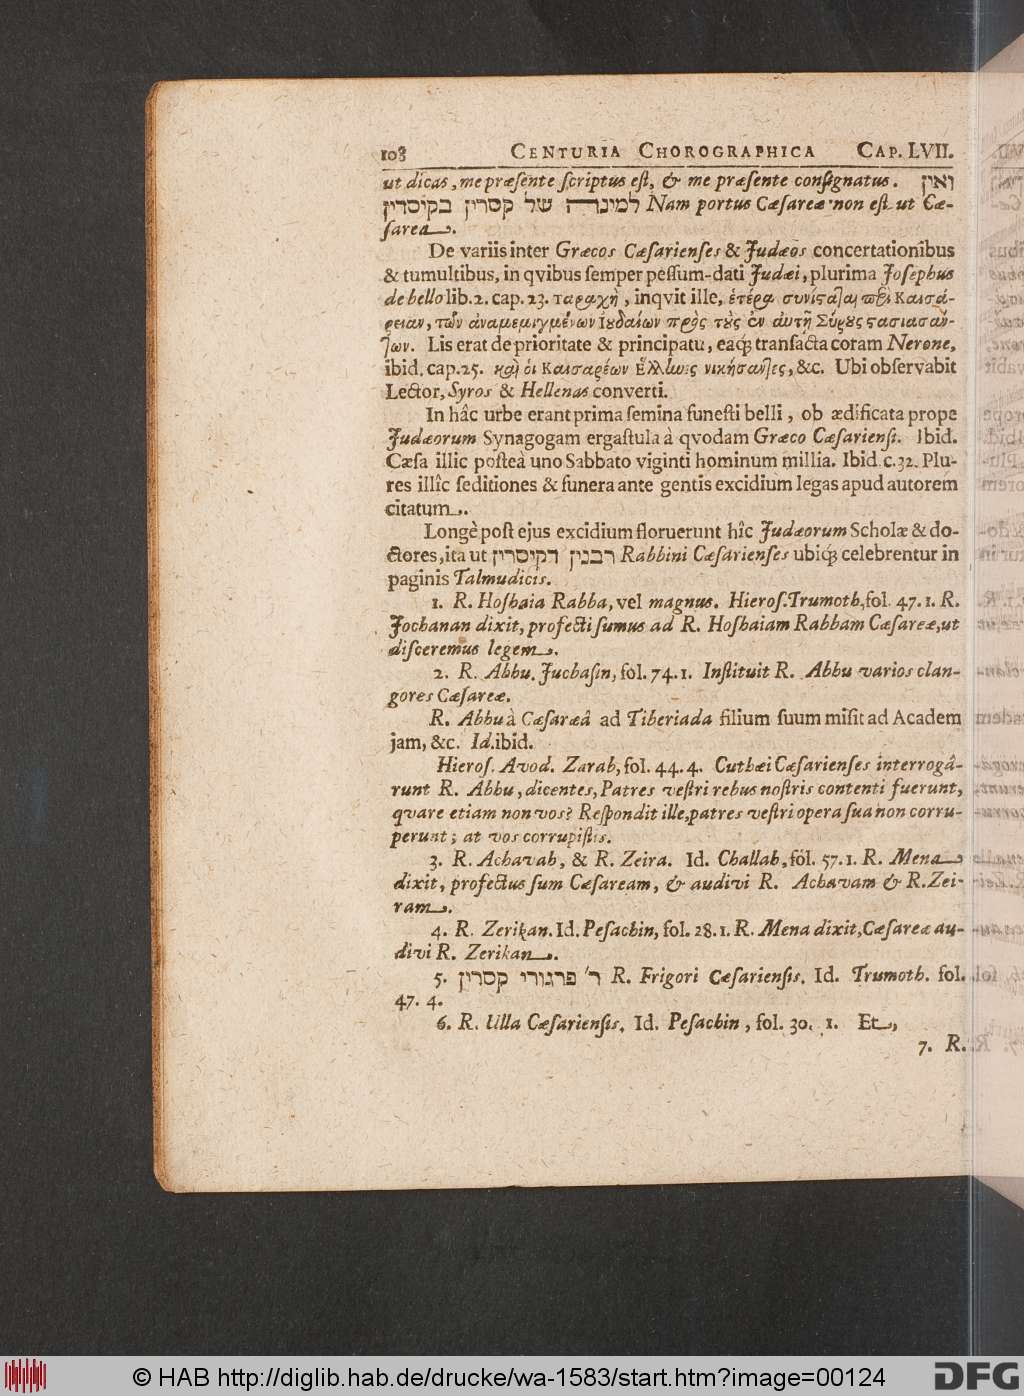 108 CENTURIA CHOROGRAPHICA CAP. LVII.
ut dicas, me præſente ſcriptus eſt, & me præſente conſignatus. ואין
למינדה של קסרין בקוסדין Nam portus Cæſareæ non eſt ut Cæ-
ſarea.
De variis inter Græcos Cæſarienſes & Judæos concertationibus
& tumultibus, in qvibus ſemper peſſum-dati Judæi, plurima Joſephus
de bello lib. 2. cap. 23. ταραχὴ, inqvit ille, ἑτέρα συνίσταται περὶ Καισά-
ρειαν, τῶν ἀναμεμιγμένων Ιουδαίων πρὸς τοὺς ἐν αὐτῇ Σύρους στασιασάν-
των. Lis erat de prioritate & principatu, eaq; tranſacta coram Nerone,
ibid. cap. 25. καὶ οἱ Καισαρέων Ἕλλωες νικήσαντες, &c. Ubi obſervabit
Lector, Syros & Hellenas converti.
In hâc urbe erant prima ſemina funeſti belli, ob ædificata prope
Judæorum Synagogam ergaſtula à qvodam Græco Cæſarienſi. Ibid.
Cæſa illic poſteà uno Sabbato viginti hominum millia. Ibid. c. 32. Plu-
res illîc ſeditiones & funera ante gentis excidium legas apud autorem
citatum.
Longè poſt ejus excidium floruerunt hîc Judæorum Scholæ & do-
ctores, ita ut רבנין דקיסרין Rabbini Cæſarienſes ubiq; celebrentur in
paginis Talmudicis.
1. R. Hoſhaia Rabba, vel magnus. Hieroſ. Trumoth, fol. 47. 1. R.
Jochanan dixit, profecti ſumus ad R. Hoſhaiam Rabbam Cæſareæ, ut
diſceremus legem.
2. R. Abbu. Juchaſin, fol. 74. 1. Inſtituit R. Abbu varios clan-
gores Cæſareæ.
R. Abhu à Cæſaræâ ad Tiberiada filium ſuum miſit ad Academ
jam, &c. Id. ibid.
Hieroſ. Avod. Zarah, fol. 44. 4. Cuthæi Cæſarienſes interrogâ-
runt R. Abhu, dicentes, Patres veſtri rebus noſtris contenti fuerunt,
qvare etiam non vos? Reſpondit ille, patres veſtri opera ſua non corru-
perunt; at vos corrupiſtis.
3. R. Achavah, & R. Zeira. Id. Challah, fol. 57. 1. R. Mena
dixit, profectus ſum Cæſaream, & audivi R. Achavam & R. Zei-
ram.
4. R. Zerikan. Id. Peſachin, fol. 28. 1. R. Mena dixit, Cæſareæ au-
divi R. Zerikan.
5. ר׳ פרגורי קסרין R. Frigori Cæſarienſis. Id. Trumoth. fol.
47. 4.
6. R. Ulla Cæſarienſis. Id. Peſachin, fol. 30. 1. Et,
7. R.
© HAB http://diglib.hab.de/drucke/wa-1583/start.htm?image=00124
DFG